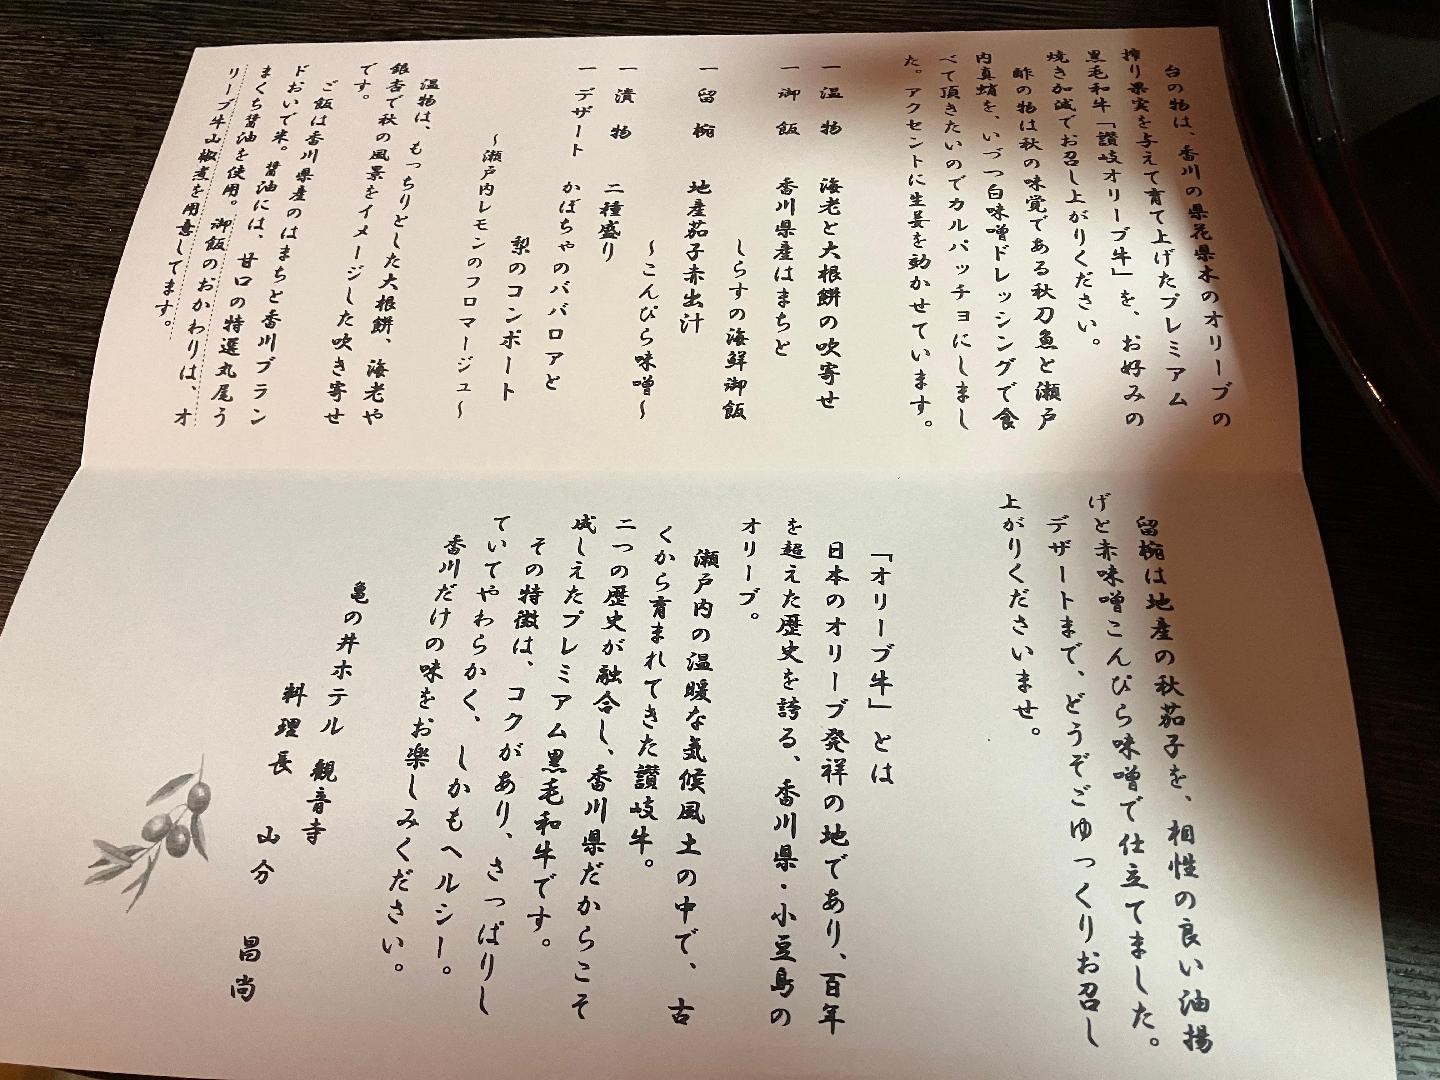 台の物は、香川の県花県木のオリーブの
搾り果実を与えて育て上げたプレミアム
黒毛和牛「讃岐オリーブ牛」を、お好みの
焼き加減でお召し上がりください。
酢の物は秋の味覚である秋刀魚と瀬戸
内真蛸を、いづつ白味噌ドレッシングで食
べて頂きたいのでカルパッチョにしまし
た。アクセントに生姜を効かせています。
一 温物 海老と大根餅の吹寄せ
一 御飯 香川県産はまちと
しらすの海鮮御飯
一 留椀 地産茄子赤出汁
～こんぴら味噌～
一 漬物 二種盛り
一 デザート かぼちゃのババロアと
梨のコンポート
～瀬戸内レモンのフロマージュ～
温物は、もっちりとした大根餅、海老や
銀杏で秋の風景をイメージした吹き寄せ
です。
ご飯は香川県産のはまちと香川ブラン
ドおいで米。醤油には、甘口の特選丸尾う
まくち醤油を使用。御飯のおかわりは、オ
リーブ牛山椒煮を用意してます。
留椀は地産の秋茄子を、相性の良い油揚
げと赤味噌こんぴら味噌で仕立てました。
デザートまで、どうぞごゆっくりお召し
上がりくださいませ。
「オリーブ牛」とは
日本のオリーブ発祥の地であり、百年
を超えた歴史を誇る、香川県・小豆島の
オリーブ。
瀬戸内の温暖な気候風土の中で、古
くから育まれてきた讃岐牛。
二つの歴史が融合し、香川県だからこそ
成しえたプレミアム黒毛和牛です。
その特徴は、コクがあり、さっぱりし
ていてやわらかく、しかもヘルシー。
香川だけの味をお楽しみください。
亀の井ホテル 観音寺
料理長 山分 昌尚